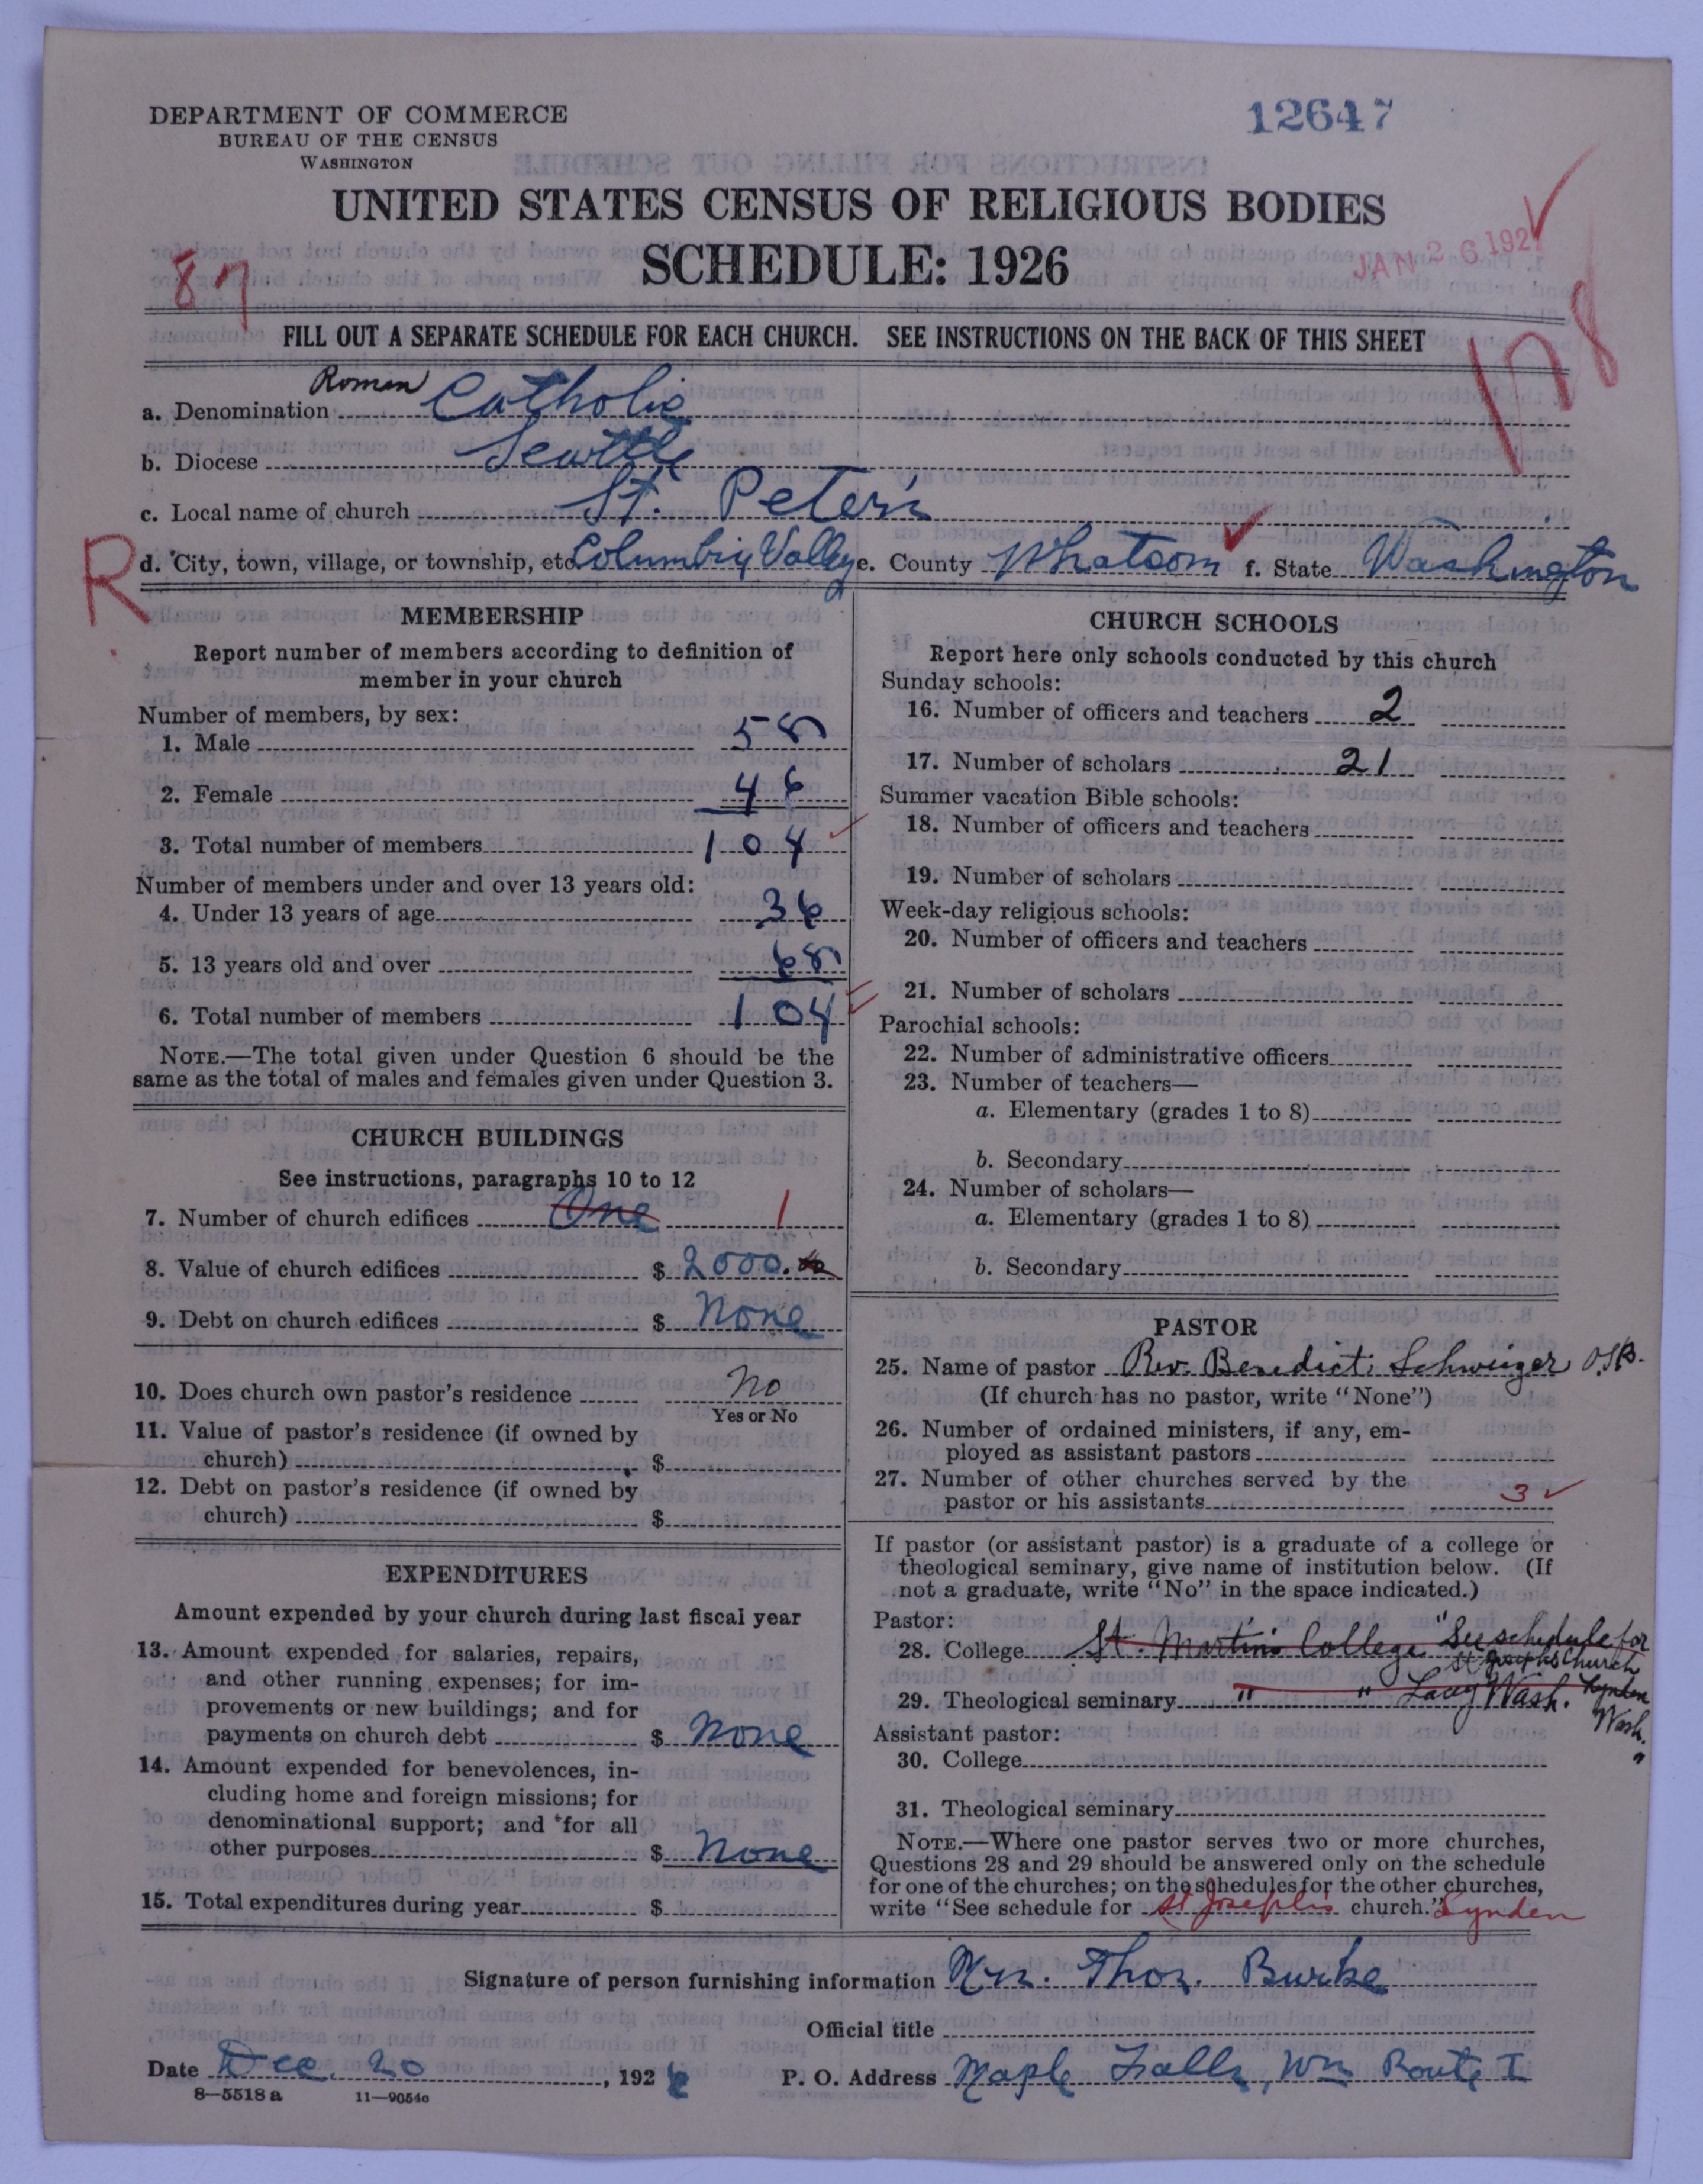 DEPARTMENT OF COMMERCE
BUREAU OF THE CENSUS
WASHINGTON
12647
UNITED STATES CENSUS OF RELIGIOUS BODIES
SCHEDULE: 1926
JAN 26 1927
87
178
FILL OUT A SEPARATE SCHEDULE FOR EACH CHURCH. SEE INSTRUCTIONS ON THE BACK OF THIS SHEET
a. Denomination Roman Catholic
b. Diocese Seattle
c. Local name of church St. Peter's
R
d. City, town, village, or township, etc. Columbia Valley e. County Whatcom f. State Washington
MEMBERSHIP
Report number of members according to definition of
member in your church
Number of members, by sex:
1. Male 58
2. Female 46
3. Total number of members 104
Number of members under and over 13 years old:
4. Under 13 years of age 36
5. 13 years old and over 68
6. Total number of members 104
NOTE.—The total given under Question 6 should be the
same as the total of males and females given under Question 3.
CHURCH BUILDINGS
See instructions, paragraphs 10 to 12
7. Number of church edifices One 1
8. Value of church edifices $ 2000.
9. Debt on church edifices $ None
10. Does church own pastor's residence No
Yes or No
11. Value of pastor's residence (if owned by
church) $
12. Debt on pastor's residence (if owned by
church) $
EXPENDITURES
Amount expended by your church during last fiscal year
13. Amount expended for salaries, repairs,
and other running expenses; for im-
provements or new buildings; and for
payments on church debt $ None
14. Amount expended for benevolences, in-
cluding home and foreign missions; for
denominational support; and for all
other purposes $ None
15. Total expenditures during year $
CHURCH SCHOOLS
Report here only schools conducted by this church
Sunday schools:
16. Number of officers and teachers 2
17. Number of scholars 21
Summer vacation Bible schools:
18. Number of officers and teachers
19. Number of scholars
Week-day religious schools:
20. Number of officers and teachers
21. Number of scholars
Parochial schools:
22. Number of administrative officers
23. Number of teachers—
a. Elementary (grades 1 to 8)
b. Secondary
24. Number of scholars—
a. Elementary (grades 1 to 8)
b. Secondary
PASTOR
25. Name of pastor Rev. Benedict Schweiger O.S.B.
(If church has no pastor, write "None")
26. Number of ordained ministers, if any, em-
ployed as assistant pastors
27. Number of other churches served by the
pastor or his assistants 3
If pastor (or assistant pastor) is a graduate of a college or
theological seminary, give name of institution below. (If
not a graduate, write "No" in the space indicated.)
Pastor:
28. College St. Martin's College "See schedule for
St Joseph's Church
29. Theological seminary " " Lacey Wash. Lynden
Wash."
Assistant pastor:
30. College
31. Theological seminary
NOTE.—Where one pastor serves two or more churches,
Questions 28 and 29 should be answered only on the schedule
for one of the churches; on the schedules for the other churches,
write "See schedule for St Joseph's church." Lynden
Signature of person furnishing information Mrs. Thos. Burke
Official title
Date Dec. 20, 1926 P. O. Address Maple Falls, Wn Route 1
8—5518 a 11—9054o